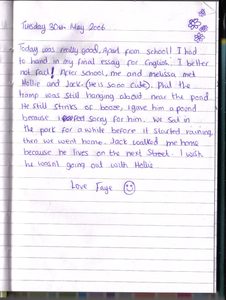 Tuesday 30th May 2006
Today was really good, apart from school! I had
to hand in my final essay for English. I better
not fail! After school, me and melissa met
Hollie and Jack. (he is sooo cute). Phil the
tramp was still hanging about near the pond.
He still stinks of booze, I gave him a pound
because I felt sorry for him. We sat in
the park for a while before it started raining,
then we went home. Jack walked me home
because he lives on the next street. I wish
he wasnt going out with Hollie
Love Faye